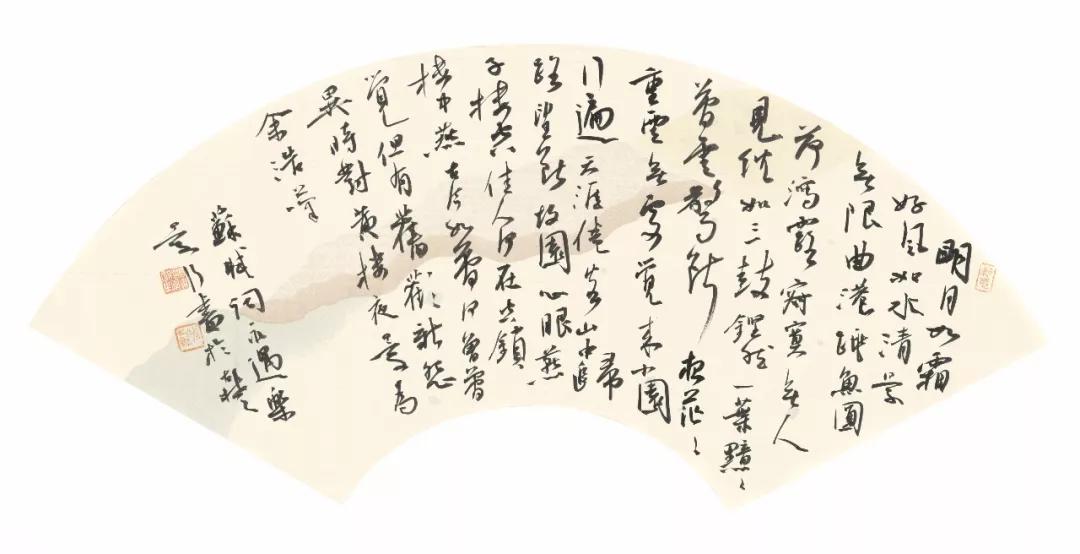 明月如霜
好風如水清景
無限曲港跳魚圓
荷瀉露寂寞無人
見紞如三鼓鏗然一葉黯黯
夢雲驚斷夜茫茫
重尋無處覺來小園
行遍天涯倦客山中歸
路望斷故園心眼燕
子樓空佳人何在空鎖
樓中燕古今如夢何曾夢
覺但有舊歡新怨
異時對黃樓夜景為
余浩嘆
蘇軾詞永遇樂
書於